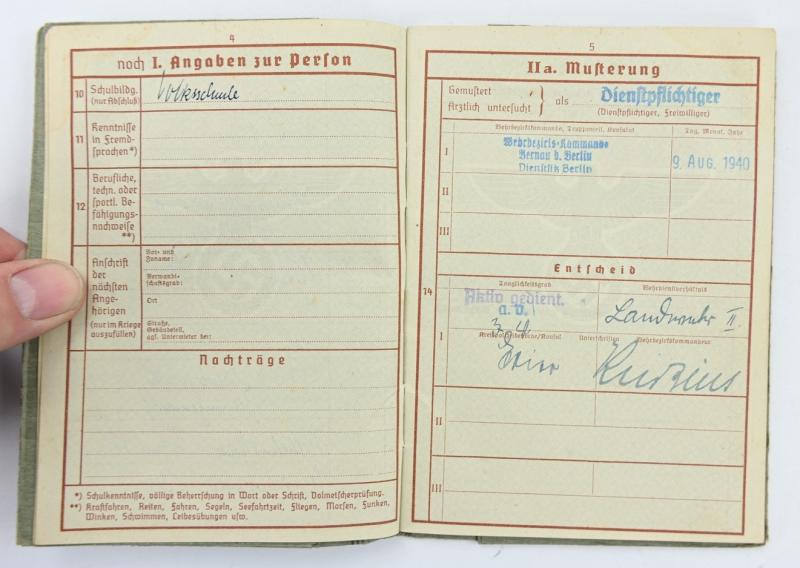 4
noch I. Angaben zur Person
10 Schulbildg.
(nur Abschluß)
Volksschule
11 Kenntnisse
in Fremd-
sprachen*)
12 Berufliche,
techn. oder
sportl. Be-
fähigungs-
nachweise
**)
13 Anschrift
der
nächsten
Ange-
hörigen
(nur im Kriege
auszufüllen)
Vor- und
Zuname:
Verwandt-
schaftsgrad:
Ort
Straße,
Gebäudeteil,
ggf. Untermieter bei:
Nachträge
*) Schulkenntnisse, völlige Beherrschung in Wort oder Schrift, Dolmetscherprüfung.
**) Kraftfahren, Reiten, Fahren, Segeln, Seefahrtzeit, Fliegen, Morsen, Funken,
Winken, Schwimmen, Leibesübungen usw.
5
IIa. Musterung
Gemustert
Ärztlich untersucht
als
Dienstpflichtiger
(Dienstpflichtiger, Freiwilliger)
Wehrbezirkskommando, Truppenteil, Konsulat
Tag, Monat, Jahr
I
Wehrbezirks-Kommando
Bernau b. Berlin
Dienstsitz Berlin
9. AUG. 1940
II
III
Entscheid
14
Tauglichkeitsgrad
Wehrdienstverhältnis
Aktiv gedient.
a. v.
Landwehr II.
I
Unterschriften
Wehrbezirkskommandeur
II
III